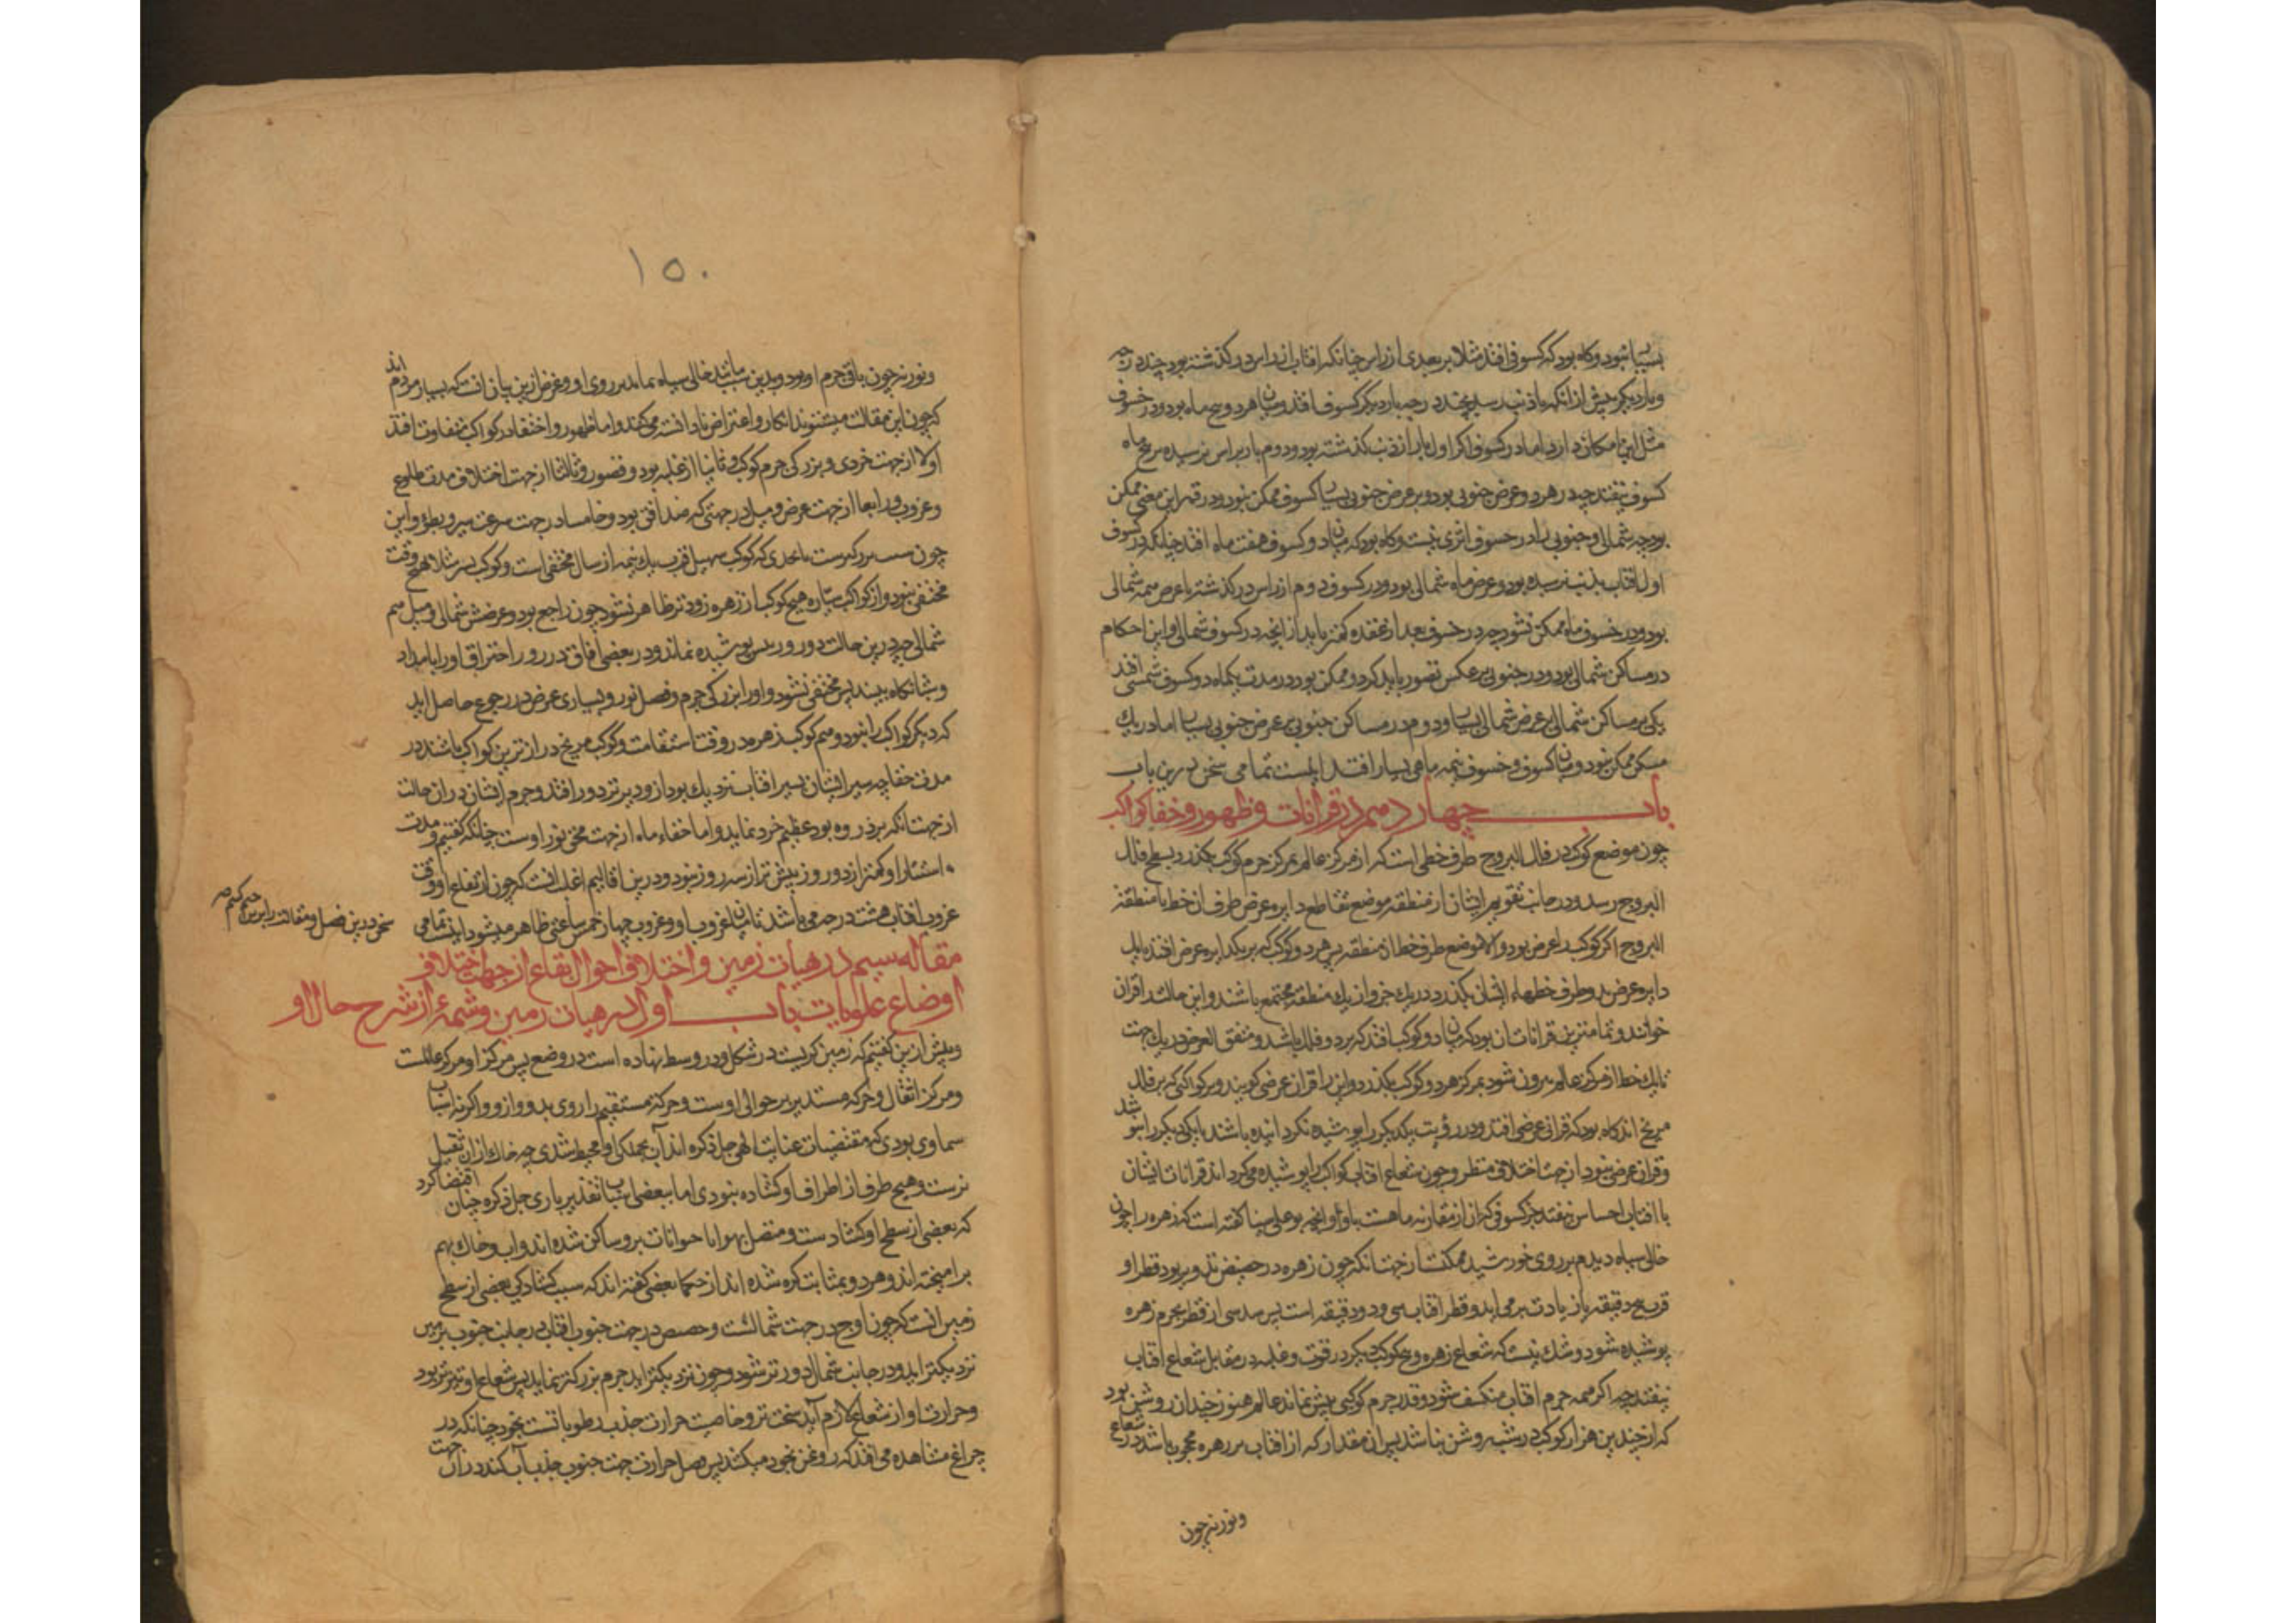 بسیار نبود و کاه بود که کسوفی افتد مثلا بر بعدی از راس چنانکه افتاب از راس در کذشته بود چند درجه
و بار دیکر پیش از انکه باذنب رسد بچند درجه بار دیکر کسوف افتد و میان هر دو پنج ماه بود و در خسوف
مثل این امکان دارد اما در کسوف اکر اول بار از ذنب بکذشته بود و دوم بار براس نرسیده در پنج ماه
کسوف نیفتد چه در هر دو عرض جنوبی بود و بر عرض جنوبی بسیار کسوف ممکن نبود و در قمر این معنی ممکن
بود چه شمالی و جنوبی را در خسوف اثری نیست و کاه بود که میان دو کسوف هفت ماه افتد چنانکه در کسوف
اول افتاب بذنب نرسیده بود و عرض ماه شمالی بود و در کسوف دوم از راس در کذشته با عرض هم شمالی
بود و در خسوف ماه ممکن نشود چه در خسوف بعد از عقده کمتر باید از انچه در کسوف شمالی و این احکام
در مساکن شمالی بود و در جنوبی بر عکس تصور باید کرد و ممکن بود در مدت یکماه دو کسوف شمسی افتد
یکی بر مساکن شمالی بر عرض شمالی بسیار و دوم در مساکن جنوبی بر عرض جنوبی بسیار اما در یک
مسکن ممکن نبود و میان کسوف و خسوف نیمه ماهی بسیار افتد اینست تمامی سخن درین باب
باب چهاردهم در قرانات و ظهور و خفا کواکب
چون موضع کوکب در فلک البروج طرف خطی است که از مرکز عالم بمرکز جرم کوکب بکذرد و بسطح فلک
البروج رسد و در جانب تقویم ایشان از منطقه موضع تقاطع دایره عرض طرف ان خط با منطقة
البروج اکر کوکب را عرض بود و الا موضع طرف خط از منطقه پس هر دو کوکب که بر یک دایره عرض افتند باید
دایره عرض بدو طرف خطهاء ایشان بکذرد در یک جزو از یک منطقه مجتمع باشند و این حالت را قران
خوانند و تمامترین قرانات ان بود که میان دو کوکب افتد که بر دو فلک باشد و متفق العرض در یک جهت
تا یک خط از مرکز عالم بیرون شود بمرکز هر دو کوکب بکذرد و این را قران عرضی کویند و بر کواکبی که بر فلک
مریخ اند کاه بود که قرانی عرضی افتد و در رؤیت یکدیکر را پوشیده نکرد انیده باشند یا یکی دیکر را
و قران عرضی نبود از جهت اختلاف منظر و چون شعاع افتاب کواکب را پوشیده میکرداند قرانات ایشان
با افتاب احساس نیفتد جز کسوفی که ان از مقارنه ماهست با او و انچه بوعلی سینا کفته است که زهره را چون
خالی سیاه دیدم بر روی خورشید ممکنست از جهت انکه چون زهره در حضیض تدویر بود قطر او
قرب پنج دقیقه باز یادت برمی اید و قطر افتاب سی و دو دقیقه است پس سدسی از قطر بجرم زهره
پوشیده شود و شک نیست که شعاع زهره و هیچ کوکب دیکر در قوت و غلبه در مقابل شعاع افتاب
نیفتد چه اکر همه جرم افتاب منکسف شود و قدر جرم کوکبی پیش نماند عالم هنوز چندان روشن بود
که از چندین هزار کوکب در شب روشن نباشد پس ان مقدار که از افتاب بر زهره محجوب باشد در شعاع
و نور نه چون
۱۵۰
و نور نه چون باقی جرم او بود و بدین سبب مانند خالی سیاه نماید بر روی او و غرض ازین بیان انست که بسیار مردم اند
که چون این مقالت میشنوند انکار و اعتراض نادانسته می کنند و اما ظهور و اختفا در کواکب متفاوت افتد
اولا از جهت خردی و بزرکی جرم کوکب و ثانیا از غلبه بود و قصور و ثالثا از جهت اختلاف مدت طلوع
و غروب و رابعا از جهت عرض و میل در جهتی که ضد افق بود و خامسا در جهت سرعت سیر و بطؤ و این
چون سبب بزرکترست تا بحدی که کوکب سهیل قرب یک نیمه از سال مختفی است و کوکب نسر مثلا هیچ وقت
مختفی نبود و از کواکب سیاره هیچ کوکب از زهره زودتر ظاهر نشود چون راجع بود و عرضش شمالی و میل هم
شمالی چه درین حالت دو روز بیش پوشیده نماند و در بعضی افاق در روز احتراق او را بامداد
و شبانکاه ببینند پس مختفی نشود و او را بزرکی جرم و فضل نور و بسیاری عرض در رجوع حاصل اید
که دیکر کواکب را نبود و هم کوکب زهره در وقت استقامت و کوکب مریخ درازترین کواکب باشند در
مدت خفا چه سیر ایشان بسیر افتاب نزدیک بود از و دیرتر دور افتد و جرم ایشان در ان حالت
از جهت انکه بر ذروه بود عظیم خرد نماید و اما خفاء ماه از جهت محق نور اوست چنانکه کفتیم و مدت
استتار او کمتر از دو روز بیش تر از سه روز نبود و درین اقالیم اغلب انست که چون ارتفاع او وقت
غروب افتاب هشت درجه می باشد تا میان غروب او و غروب چهار خمس ساعتی ظاهر میشود اینست تمامی
سخن درین فصل و مقالت را برین ختم کنیم
مقاله سیم در هیات زمین و اختلاف احوال بقاع از جهت اختلاف
اوضاع علویات باب اول در هیات زمین و شمهٔ از شرح حال او
و پیش ازین کفتیم که زمین کریست در شکل و در وسط نهاده است در وضع پس مرکز او مرکز عالمست
و مرکز اثقال و حرکه مستدیر بر حوالی اوست و حرکة مستقیم را روی بدو و ازو و اکر نه اسباب
سماوی بودی که مقتضیات عنایت الهی جل ذکره اند آب بجملکی او محیط شدی چه خاک از ان ثقیل
ترست و هیچ طرف از اطراف او کشاده نبودی اما بعضی اسباب تقدیر باری جل ذکره چنان اقتضا کرد
که بعضی از سطح او کشادست و متصل بهوا تا حیوانات برو ساکن شده اند و اب و خاک بهم
بر امیخته اند و هر دو بمثابت کره شده اند از حکما بعضی کفته اند که سبب کشادکی بعضی از سطح
زمین انست که چون اوج در جهت شمالست و حضیض در جهت جنوب افتاب در جانب جنوب بزمین
نزدیکتر اید و در جانب شمال دورتر شود و چون نزدیکتر اید جرم بزرکتر نماید پس شعاع او تیزتر بود
و حرارت او از شعاع لازم آید سخت تر و خاصیت حرارت جذب رطوباتست بخود چنانکه در
چراغ مشاهده می افتد که روغن بخود میکشد پس فصل حرارت جهت جنوب جذب آب کند در ان جهت